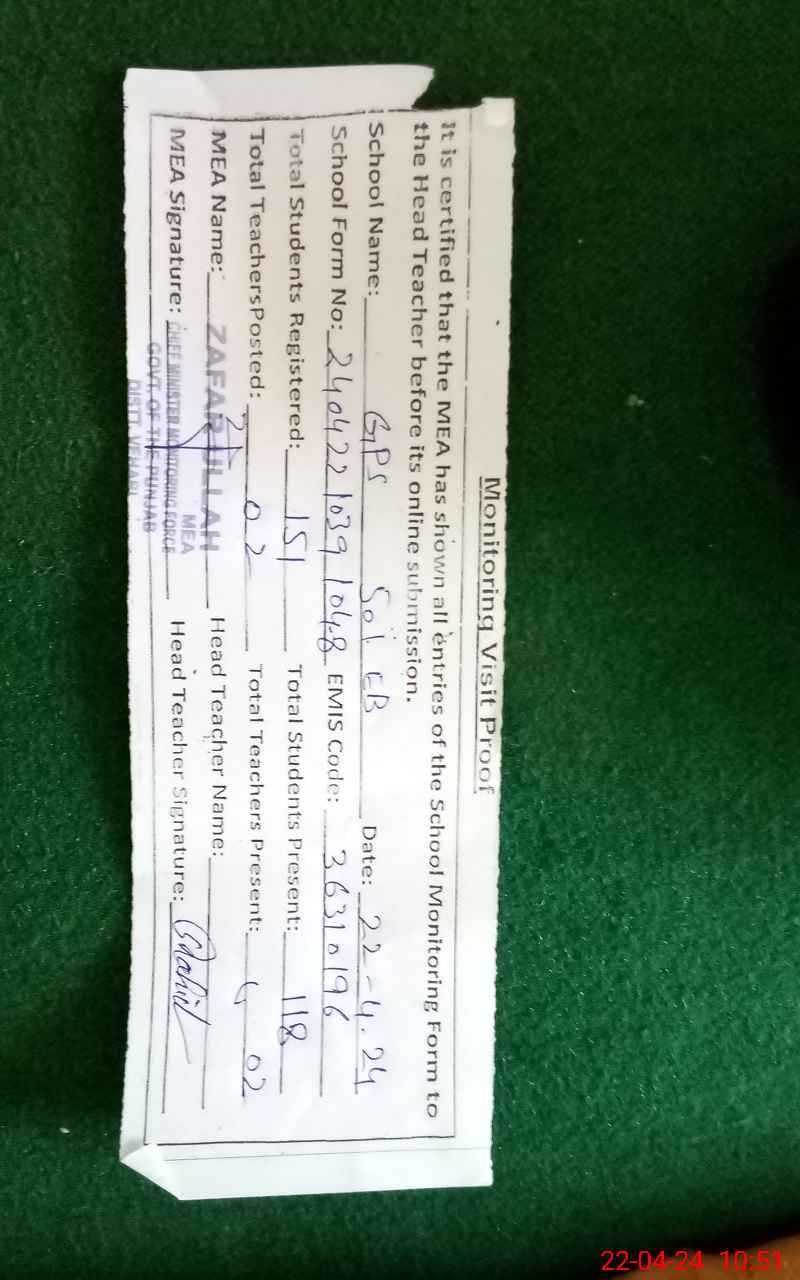 Monitoring Visit Proof
It is certified that the MEA has shown all entries of the School Monitoring Form to
the Head Teacher before its online submission.
School Name: GPS 501 EB Date: 22-4.24
School Form No: 2404221039 1048 EMIS Code: 36310196
Total Students Registered: 151 Total Students Present: 118
Total TeachersPosted: 02 Total Teachers Present: 02
MEA Name: ZAFAR ULLAH Head Teacher Name:
MEA
MEA Signature: CHIEF MINISTER MONITORING FORCE Head Teacher Signature:
GOVT. OF THE PUNJAB
DISTT. VEHARI
22-04-24 10:51